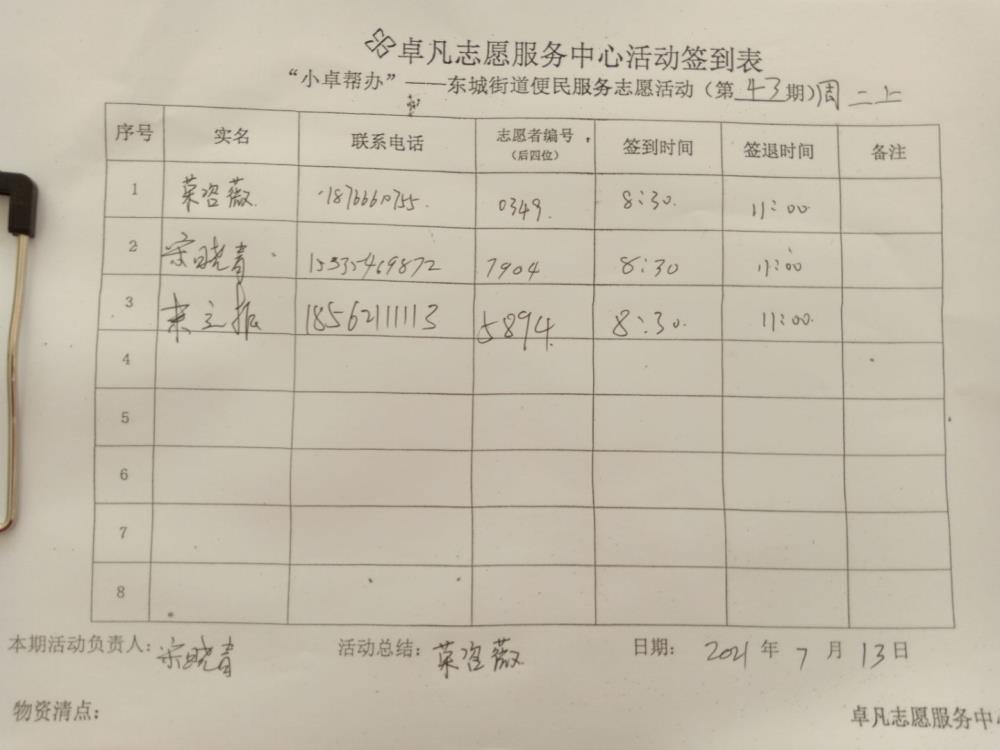 卓凡志愿服务中心活动签到表
“小卓帮办”——东城街道便民服务志愿活动（第43期）周二上
序号 实名 联系电话 志愿者编号（后四位） 签到时间 签退时间 备注
1 荣咨薇 0349 8:30 11:00
2 宋晓青 15335469872 7904 8:30 11:00
3 18562111113 5894 8:30 11:00
4
5
6
7
8
本期活动负责人：宋晓青 活动总结：荣咨薇 日期：2021年7月13日
物资清点： 卓凡志愿服务中